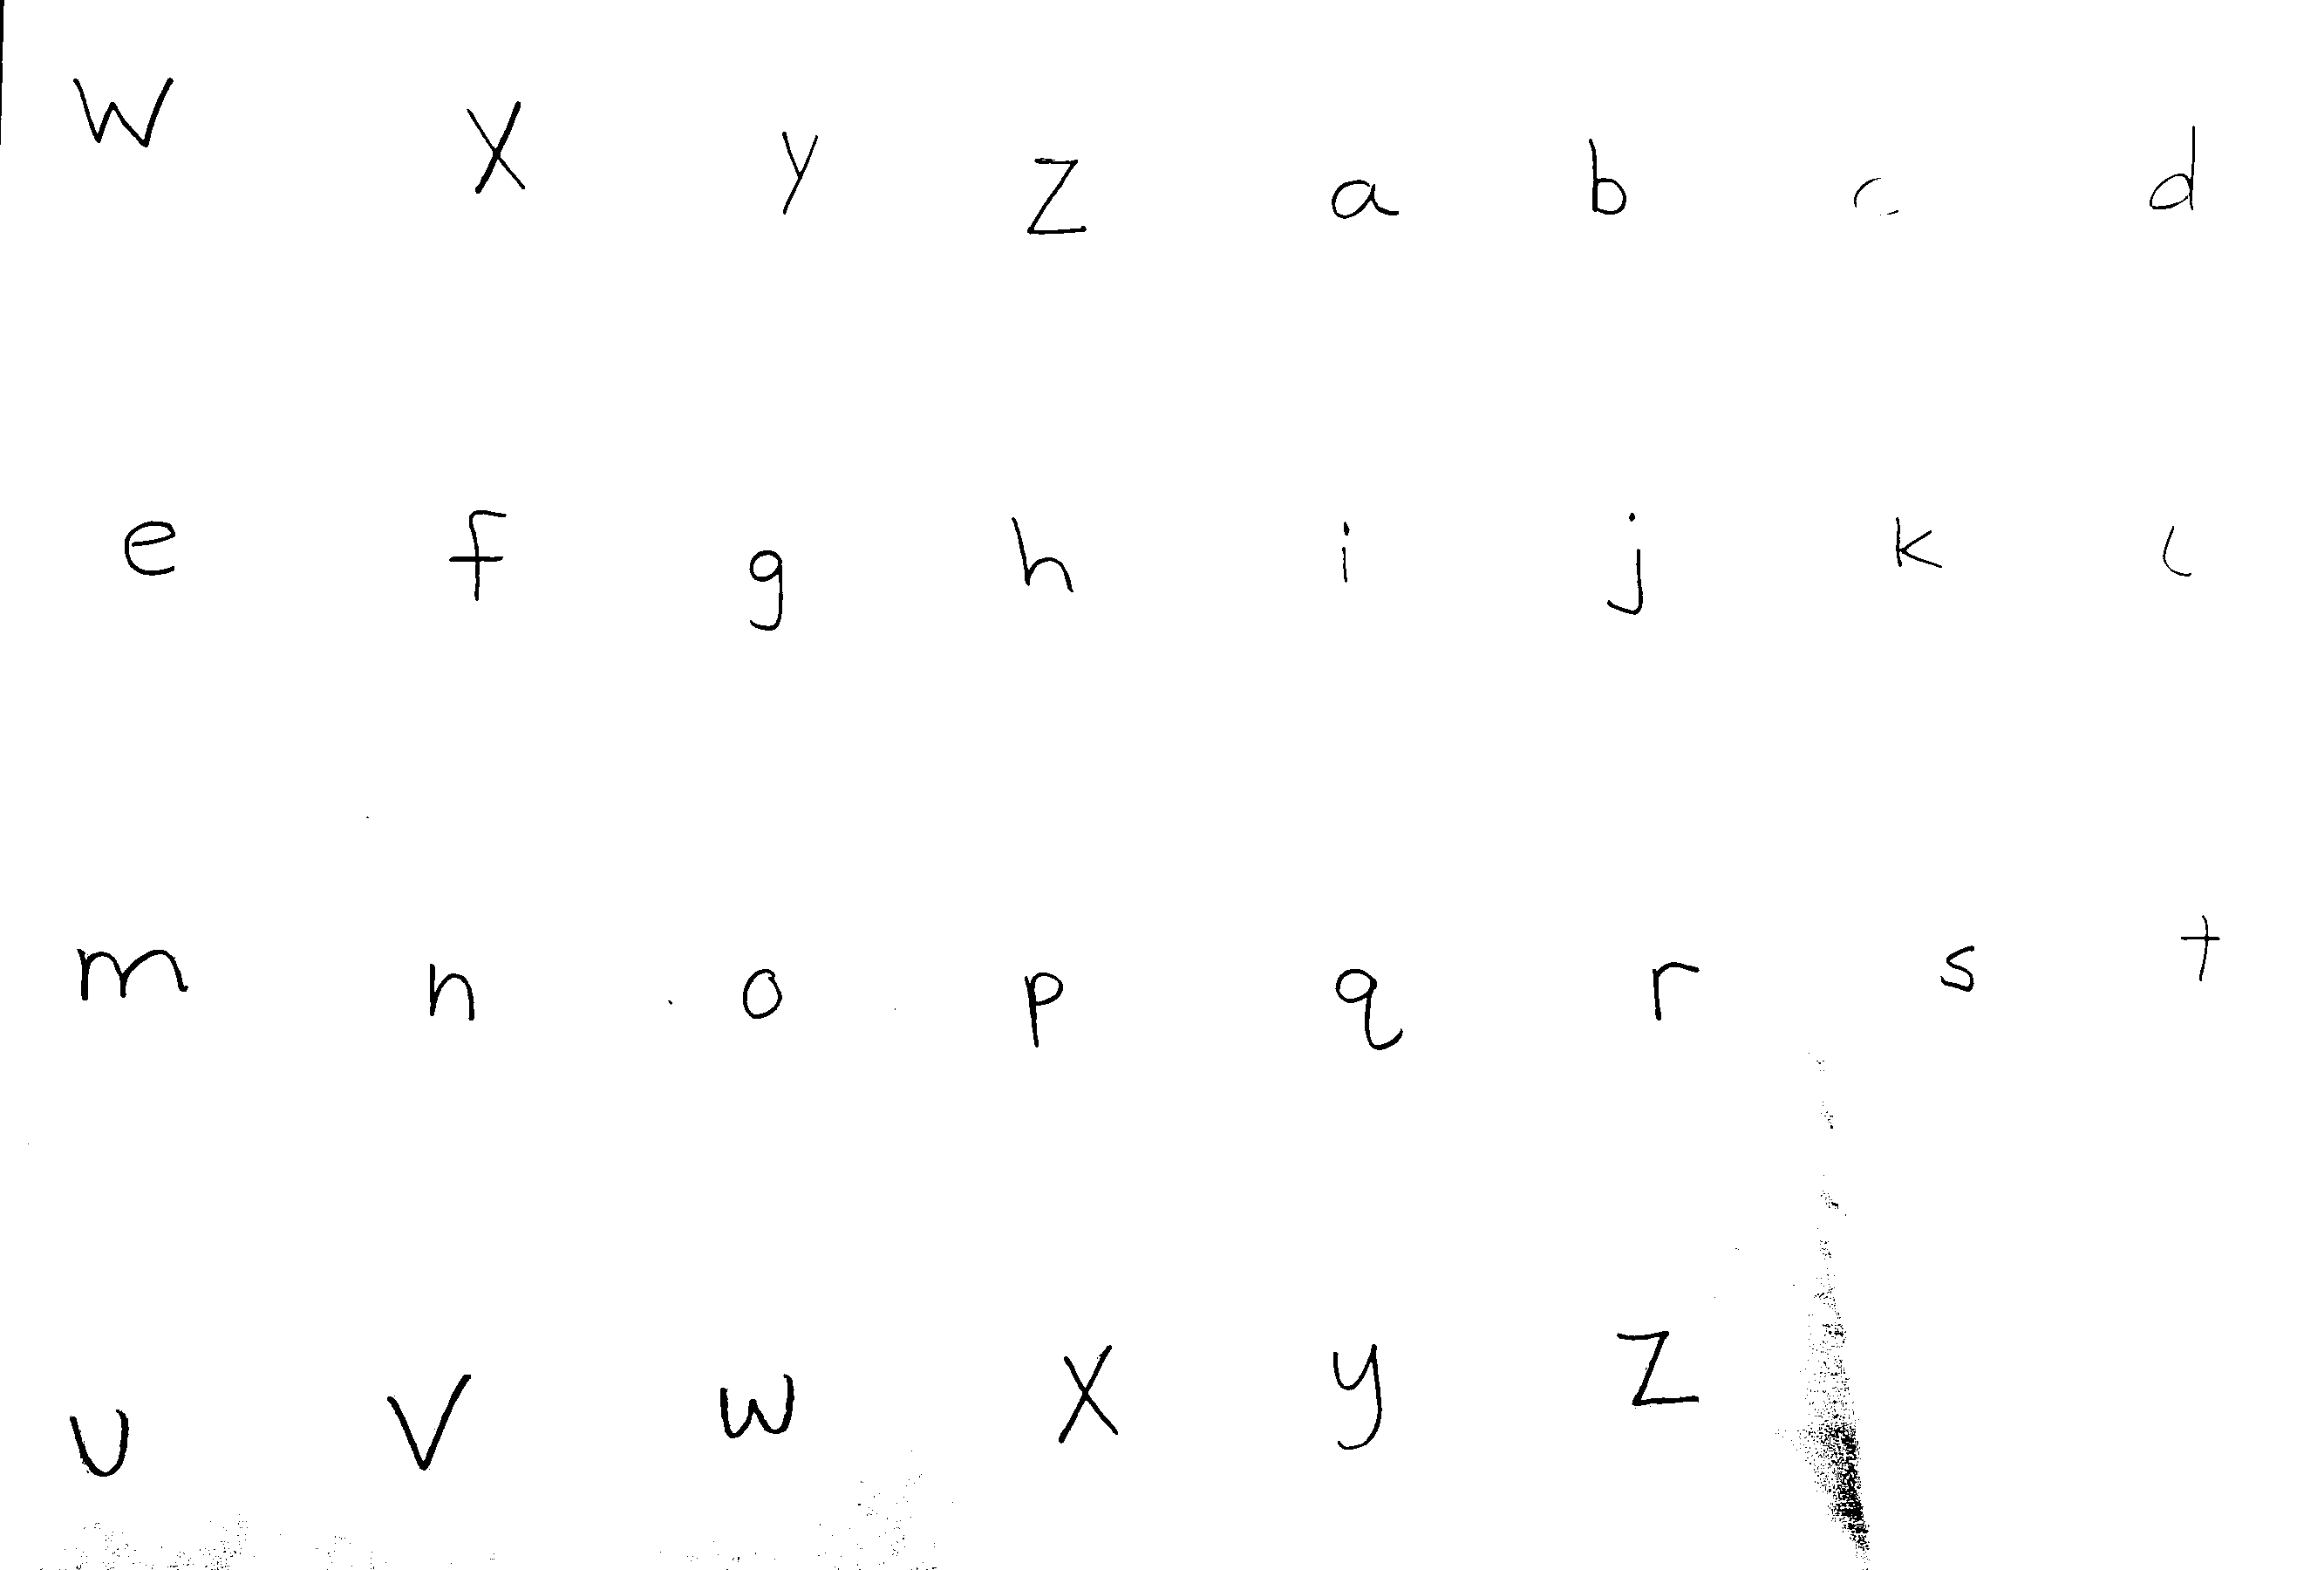 W X Y Z a b c d
e f g h i j k l
m n o p q r s t
u v w x y z